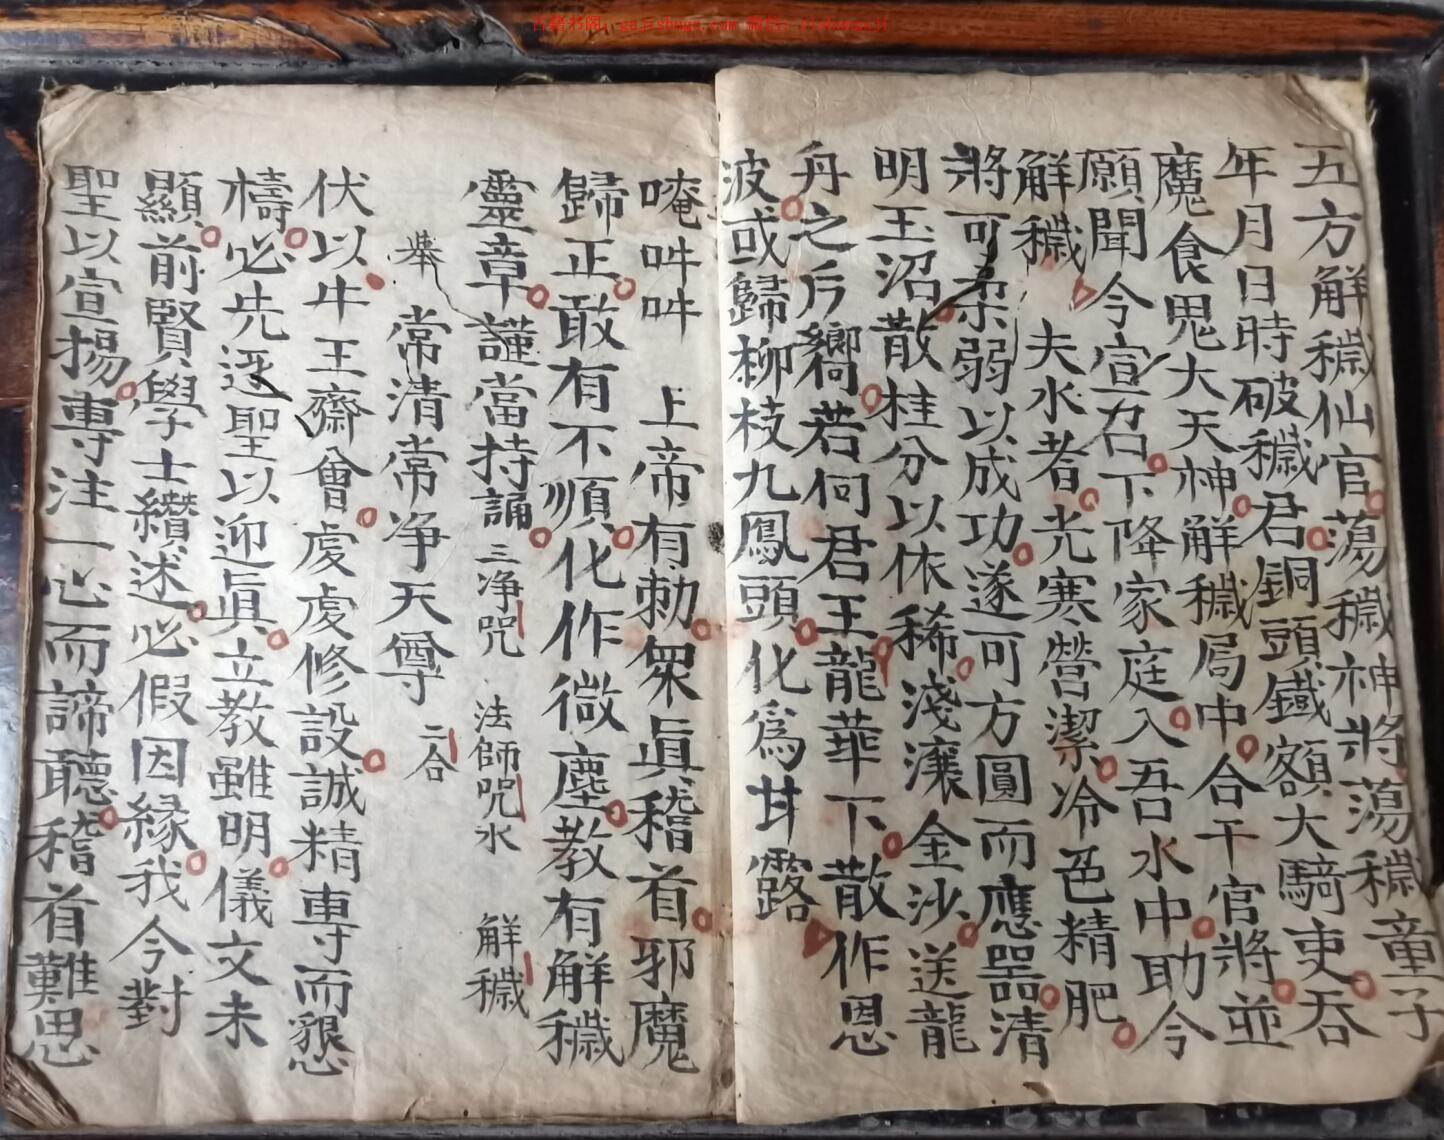 五方解穢仙官蕩穢神將蕩穢童子
年月日時破穢君銅頭鐵額大騎吏吞
魔食鬼大天神解穢局中合干官將並
願聞今宣召下降家庭入吾水中助今
解穢 夫水者光寒營潔冷色精肥
將可柔弱以成功遂可方圓而應器清
明玉沼散桂分以依稀淺瀼金沙送龍
舟之后嚮若何君王龍華下散作恩
波或歸柳枝九鳳頭化爲甘露
唵吽吽 上帝有勅衆眞稽首邪魔
歸正敢有不順化作微塵教有解穢
靈章謹當持誦 三净咒 法師咒水 解穢
舉 常清常净天尊 二合
伏以牛王齋會虔虔修設誠精專而懇
禱必先迓聖以迎眞立教雖明儀文未
顯前賢學士纘述必假因緣我今對
聖以宣揚專注一心而諦聽稽首難思